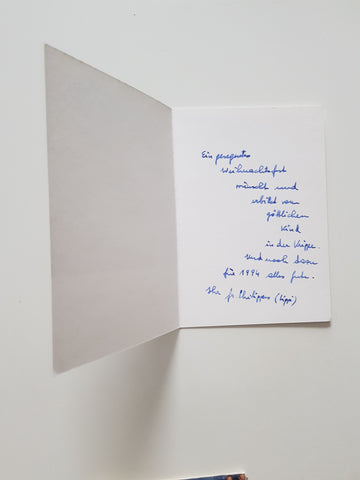 Ein gesegnetes
Weihnachtsfest
wünscht und
erbittet vom
göttlichen
Kind
in der Krippe.
Und noch dazu
für 1994 alles Gute.
Ihr fr. Philippus (Lippi)